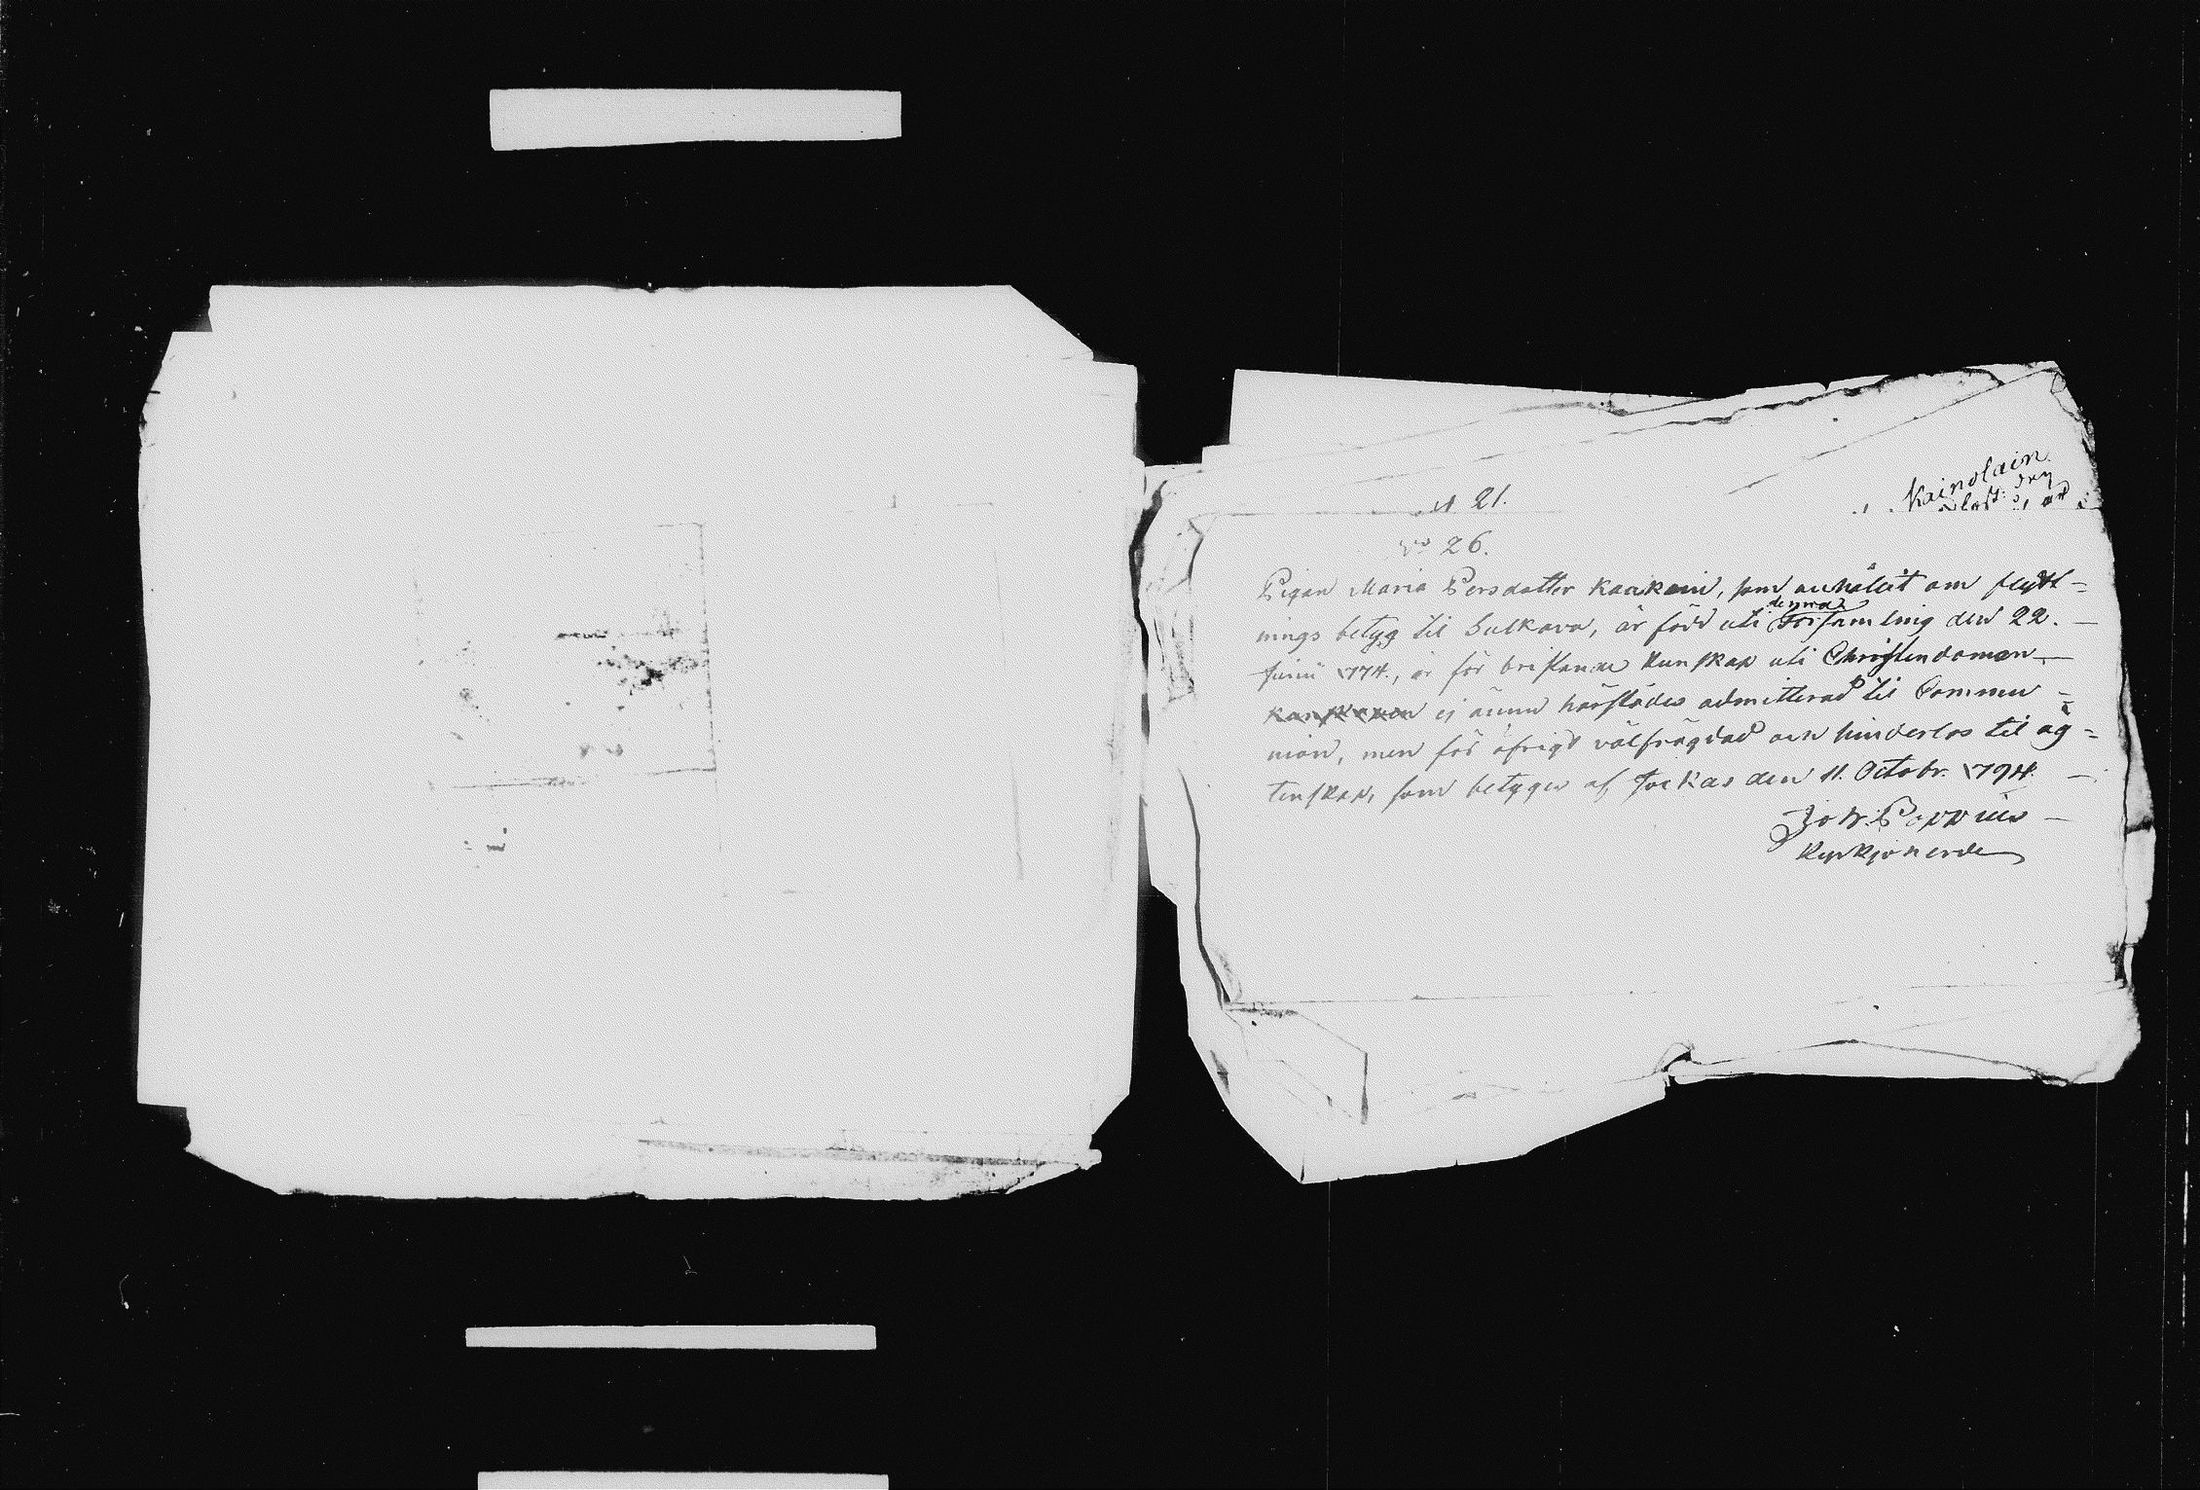 Kainolain
N 21.
No 26.
Pigan Maria Persdotter Kaukain, som anhållit om flytt-
nings betyg til Sulkava, är född uti denna Församling den 22.
Junii 1774., är för bristande kunskap uti Christendomen
ej ännu härstädes admitterad til Commu-
nion, men för öfrigt välfrägdad och hinderlös til äg-
tenskap, som betygar af Jockas den 11. Octobr. 1794.
Joh. Poppius
Kyrkjoherde